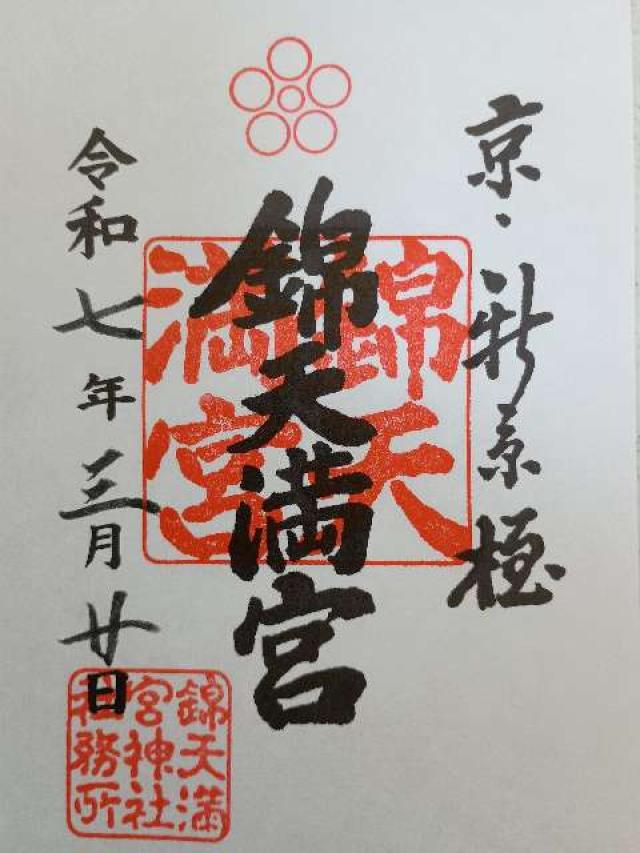 京・新京極
錦天満宮
錦天
満宮
令和七年三月廿日
錦天満
宮神社
社務所